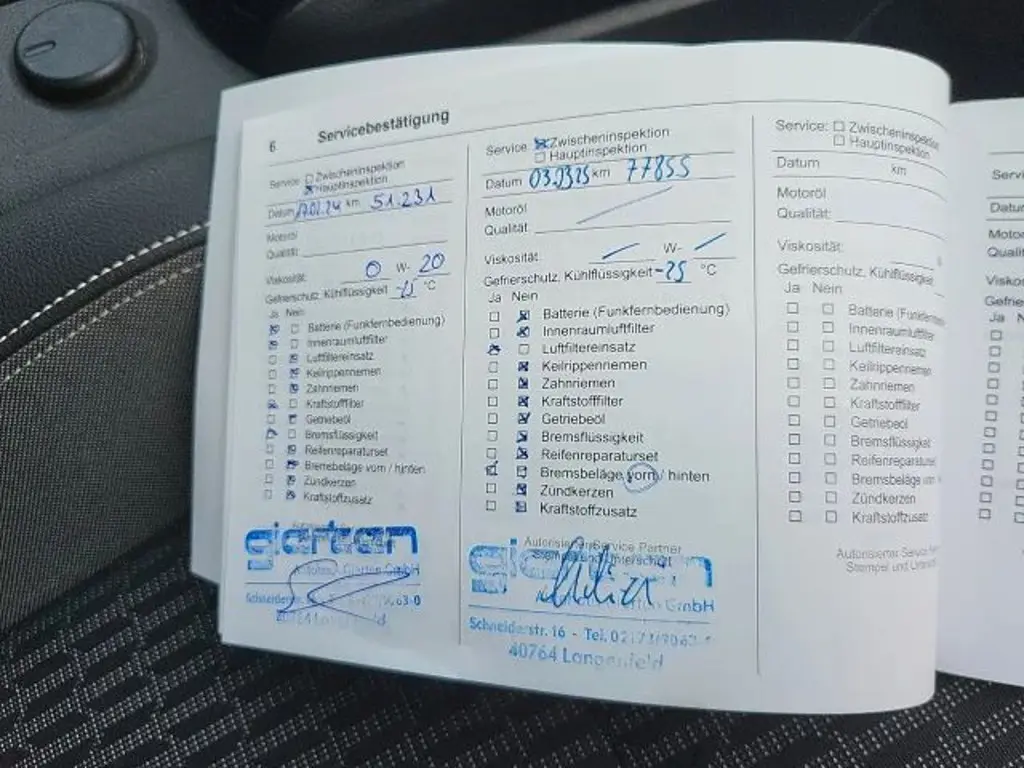 6 Servicebestätigung
Service: Zwischeninspektion
Hauptinspektion
Datum 17.02.24 km 51.231
Motoröl
Qualität:
Viskosität: 0 W- 20
Gefrierschutz, Kühlflüssigkeit °C
Ja Nein
Batterie (Funkfernbedienung)
Innenraumluftfilter
Luftfiltereinsatz
Keilrippenriemen
Zahnriemen
Kraftstofffilter
Getriebeöl
Bremsflüssigkeit
Reifenreparaturset
Bremsbeläge vorn / hinten
Zündkerzen
Kraftstoffzusatz
gierten
Autohaus Gierten GmbH
Schneiderstr.
40764 Langenfeld
Service: Zwischeninspektion
Hauptinspektion
Datum 03.03.25 km 77855
Motoröl
Qualität:
Viskosität: W-
Gefrierschutz, Kühlflüssigkeit -25 °C
Ja Nein
Batterie (Funkfernbedienung)
Innenraumluftfilter
Luftfiltereinsatz
Keilrippenriemen
Zahnriemen
Kraftstofffilter
Getriebeöl
Bremsflüssigkeit
Reifenreparaturset
Bremsbeläge vorn / hinten
Zündkerzen
Kraftstoffzusatz
Autorisierter Service Partner
Stempel und Unterschrift
gierten
GmbH
Schneiderstr. 16 - Tel. 02173/9063-
40764 Langenfeld
Service: Zwischeninspektion
Hauptinspektion
Datum km
Motoröl
Qualität:
Viskosität:
Gefrierschutz, Kühlflüssigkeit
Ja Nein
Batterie (Funkfernbe
Innenraumluftfilter
Luftfiltereinsatz
Keilrippenriemen
Zahnriemen
Kraftstofffilter
Getriebeöl
Bremsflüssigkeit
Reifenreparaturset
Bremsbeläge vorn
Zündkerzen
Kraftstoffzusatz
Autorisierter Service
Stempel und Unters
Servi
Datu
Moto
Quali
Viskos
Gefrie
Ja N